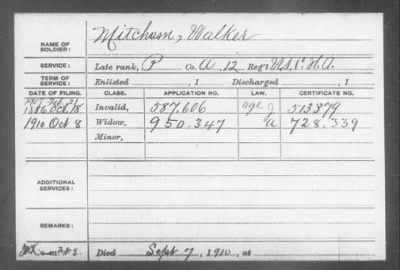 Mitchum, Walker
NAME OF SOLDIER:
SERVICE: Late rank, P Co. A. 12 Reg't U.S.C.H.A.
TERM OF SERVICE: Enlisted , 1 Discharged , 1
DATE OF FILING. CLASS. APPLICATION NO. LAW. CERTIFICATE NO.
1907 Feb 21 age
1886 Oct. 18 Invalid, 587.606 513379
1910 Oct 8 Widow, 950.347 728.339
Minor,
ADDITIONAL SERVICES:
REMARKS:
Died Sept 7, 1910, at